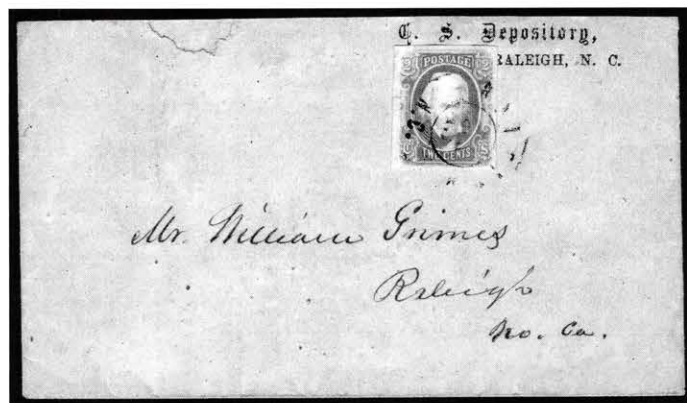 C. S. Depository,
RALEIGH, N. C.
POSTAGE
TWO CENTS
Mr. William Grimes
Raleigh
No. Ca.